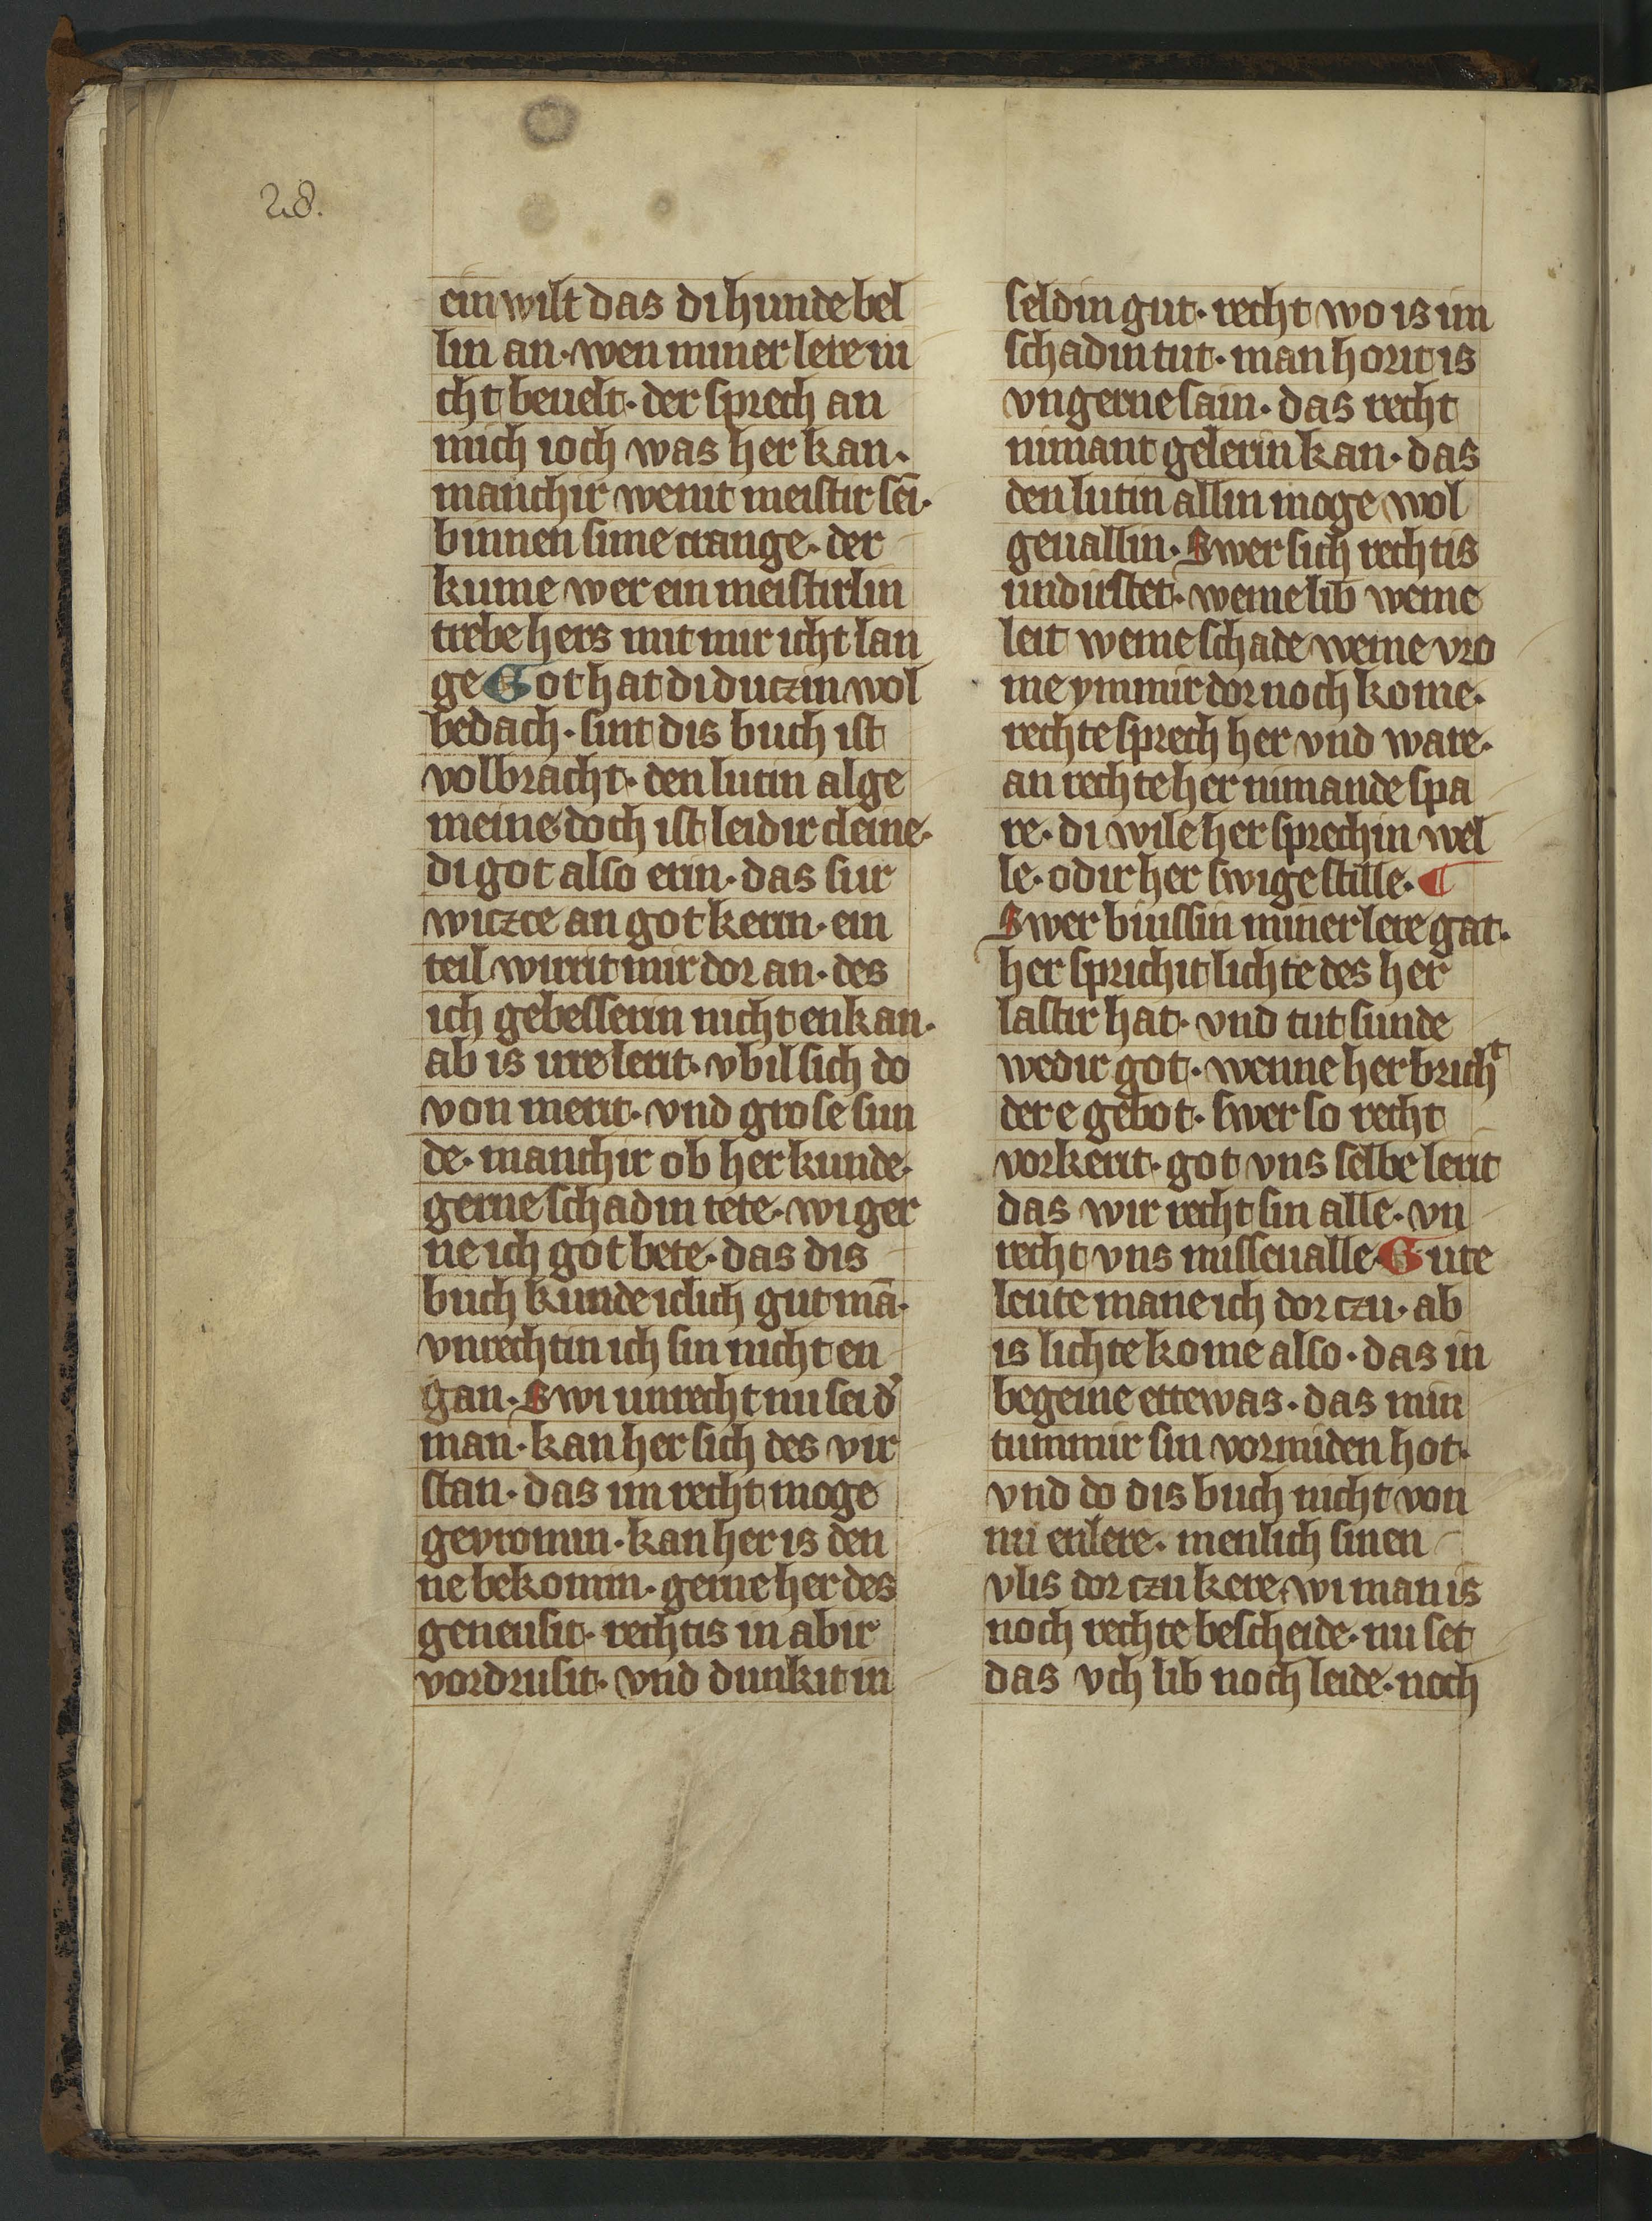 28.
ein wilt das di hunde bel
lin an· wen miner lere ni
cht beuelt· der sprech an
mich ioch was her kan·
manchir wenit meistir sei·
binnen sime crange· der
kume wer ein meistirlin
trebe hers mit mir icht lan
ge Got hat di duczin wol
bedach· sint dis buch ist
volbracht· den lutin alge
meine· doch ist leidir cleine·
di got also erin· das sur
wiczce an got kerin· ein
teil wirrit mir dor an· des
ich gebesserin nicht enkan·
ab is ure lerit· vbil sich do
von merit· vnd grose sun
de· manchir ob her kunde·
gerne schadin tete· wi ger
ne ich got bete· das dis
buch kunde iclich gut mā·
vnrechtin ich sin nicht en
gan· Swi unrecht nu sei d᾽
man· kan her sich des vir
stan· das im recht moge
gevromin· kan her is den
ne bekomin· gerne her des
geneusit· rechtis in abir
vordrusit· vnd dunkit in
seldin gut· recht wo is im
schadin tut· man horit is
vngerne sain· das recht
nimant gelerin kan· das
den lutin allin moge wol
geuallin· Swer sich rechtis
undirstet· weme lib weme
leit weme schade weme vro
me ymmir dor noch kome·
rechte sprech her vnd ware·
an rechte her nimande spa
re· di wile her sprechin wel
le· odir her swige stille· ¶
Swer biussin miner lere gat·
her sprichit lichte des her
lastir hat· vnd tut sunde
wedir got· wenne her bricht
der e gebot· swer so recht
vorkerit· got vns selbe lerit
das wir recht sin alle· vn
recht vns misseualle· Gute
leute mane ich dor czu· ab
is lichte kome also· das in
begeine ettewas· das min
tummir sin vormiden hot·
vnd do dis buch nicht von
nu enlere· menlich sinen
vlis dor czu kere· wi man is
noch rechte bescheide· nu set
das vch lib noch leide· noch